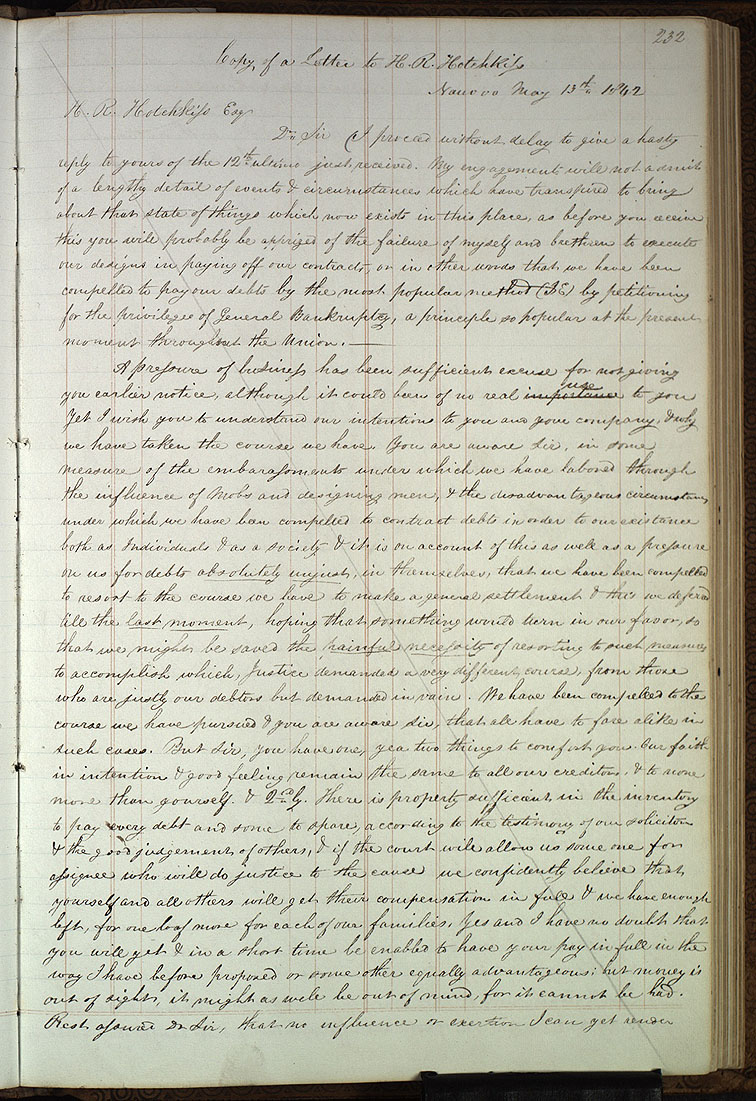 232
Copy, of a Letter to H. R. Hotchkiss
Nauvoo May 13th 1842
H. R. Hotchkiss Esq
Dr Sir I proceed without delay to give a hasty
reply to yours of the 12th ultimo just received. My engagements will not admit
of a lengthy detail of events & circumstances which have transpired to bring
about that state of things which now exists in this place, as before you receive
this you will probably be apprized of the failure of myself and brethren to execute
our designs in paying off our contracts, or in other words that we have been
compelled to pay our debts by the most popular method (IE) by petitioning
for the privilege of General Bankruptcy, a principle so popular at the present
moment throughout the Union. —
A pressure of business has been sufficient excuse for not giving
you earlier notice, although it could been of no real importance use to you
Yet I wish you to understand our intentions to you and your company, & why
we have taken the course we have. You are aware Sir, in some
measure of the embarassments under which we have labored through
the influence of Mobs and designing men, & the disadvantageous circumstances
under which we have been compelled to contract debts in order to our existance
both as Individuals & as a society & it is on account of this as well as a pressure
on us for debts absolutely unjust, in themselves, that we have been compelled
to resort to the course we have to make a general settlement & this we defered
till the last moment, hoping that something would turn in our favor, so
that we might be saved the painful necessity of resorting to such measures
to accomplish which, Justice demanded a very different course, from those
who are justly our debtors but demanded in vain. We have been compelled to the
course we have pursued & you are aware sir, that all have to fare alike in
such cases. But Sir, you have one, yea two things to comfort you. Our faith
in intention & good feeling remain the same to all our creditors, & to none
more than yourself. & 2ndly. There is property sufficient in the inventory
to pay every debt and some to spare, according to the testimony of our solicitors
& the good judgement of others, & if the court will allow us some one for
assignee who will do justice to the cause we confidently believe that
yourself and all others will get their compensation in full & we have enough
left, for one loaf more for each of our families. Yes and I have no doubt that
you will yet & in a short time be enabled to have your pay in full in the
way I have before proposed or some other equally advantageous; but money is
out of sight, it might as well be out of mind, for it cannot be had.
Rest assured Dr Sir, that no influence or exertion I can yet render